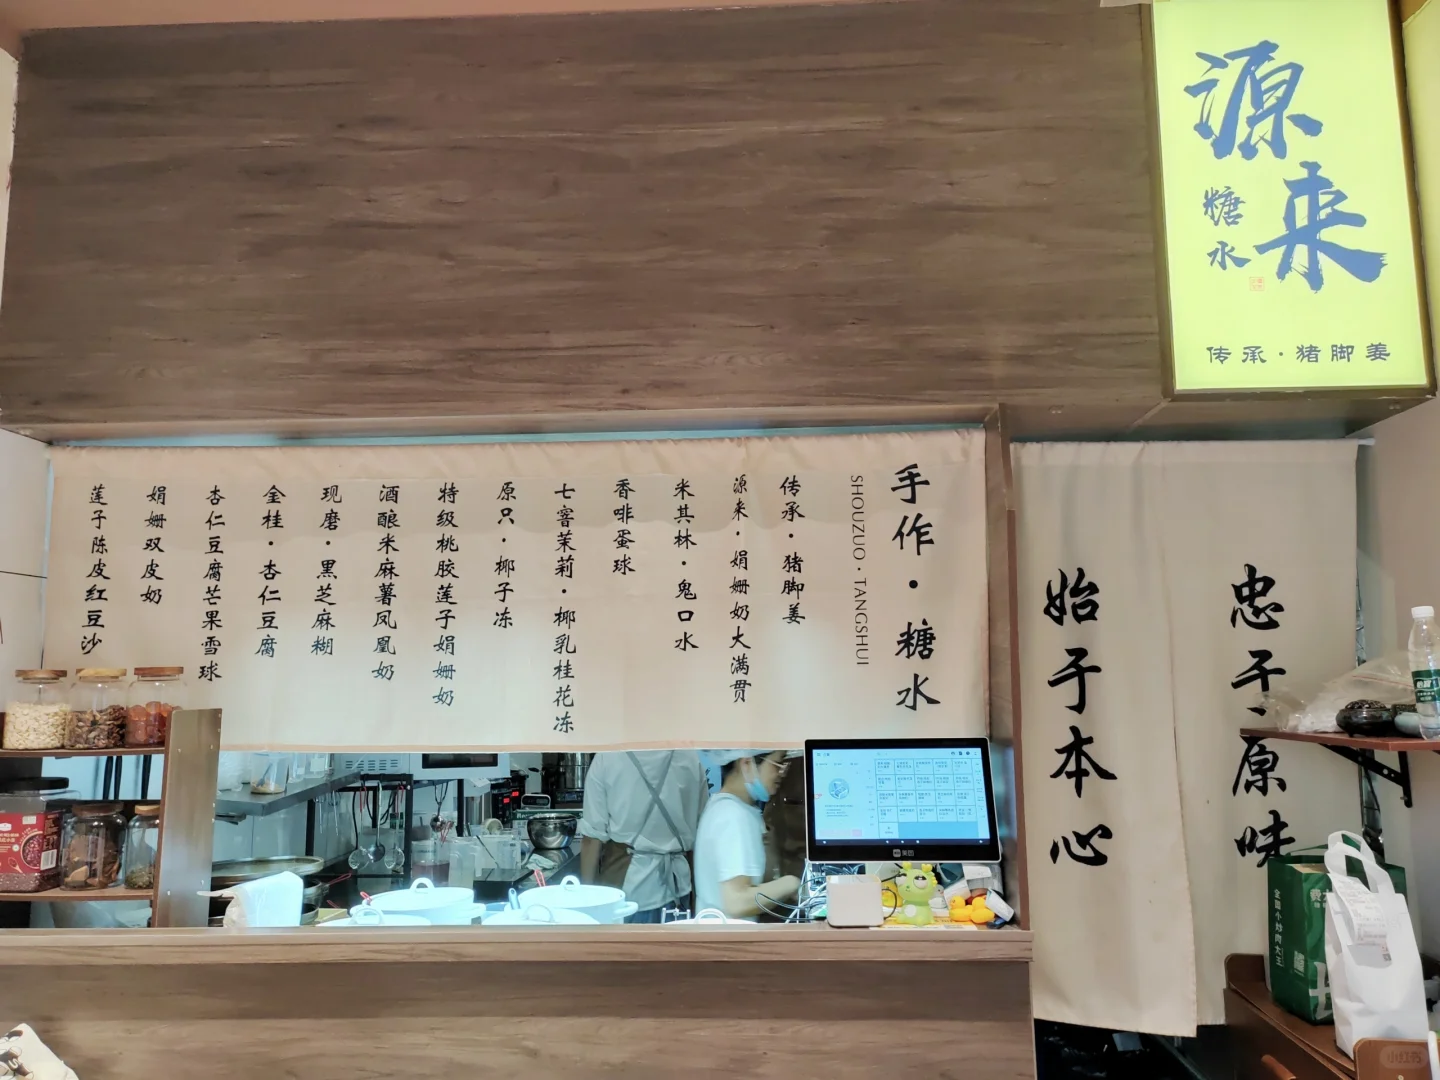 源来
糖水
传承·猪脚姜
手作·糖水
SHOUZUO·TANGSHUI
传承·猪脚姜
源来·娟姗奶大满贯
米其林·鬼口水
香啡蛋球
七窨茉莉·椰乳桂花冻
原只·椰子冻
特级桃胶莲子娟姗奶
酒酿米麻薯凤凰奶
现磨·黑芝麻糊
金桂·杏仁豆腐
杏仁豆腐芒果雪球
娟姗双皮奶
莲子陈皮红豆沙
忠于·原味
始于本心
全国小炒肉大王
小红书